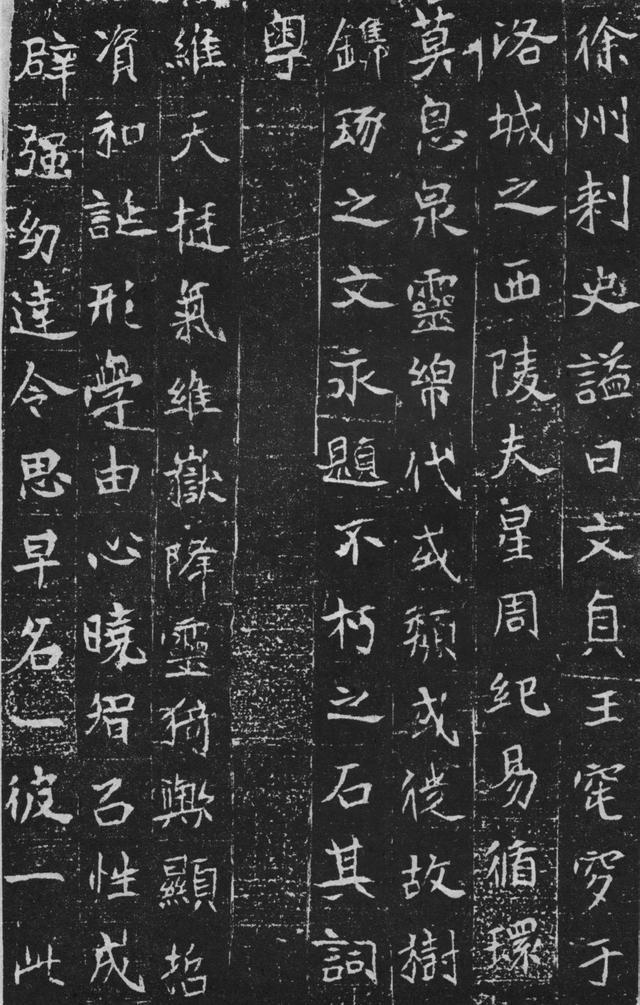 徐州刺史謚曰文貞王窀穸于
洛城之西陵夫星周紀易循環
莫息泉靈綿代或頹或徙故樹
鐫琢之文永題不朽之石其詞
粵
維天挺氣維嶽降靈猗歟顯哲
資和誕形學由心曉智㠯性成
辟强幼達令思早名一彼一此